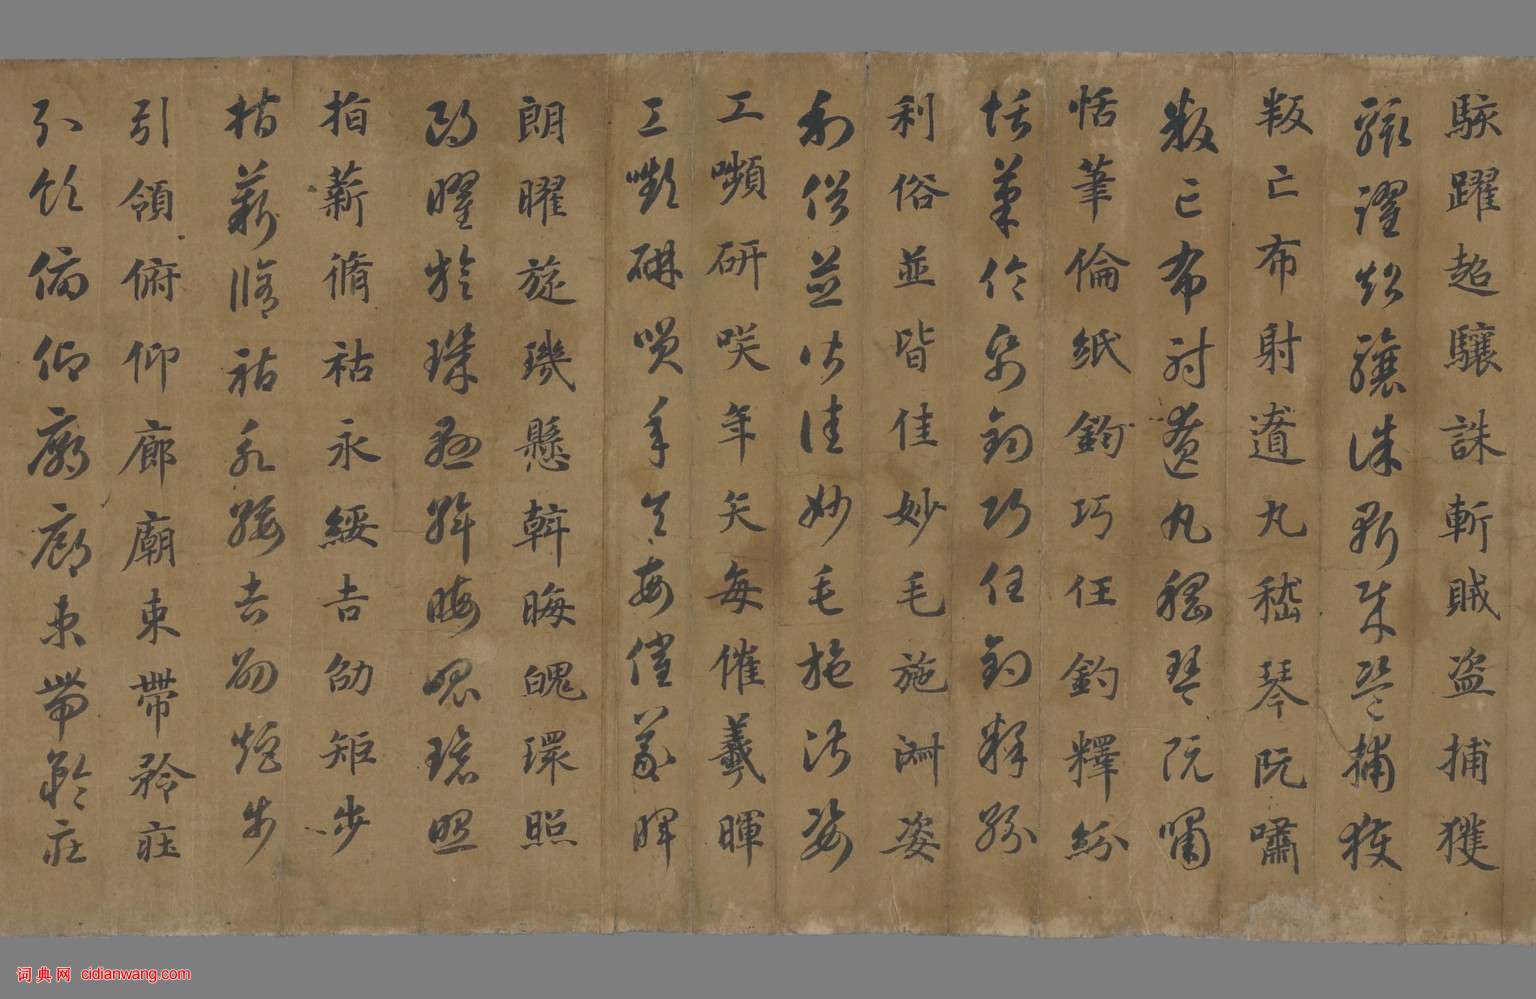 駭躍超驤誅斬賊盗捕獲
駭躍超驤誅斬賊盗捕獲
叛亡布射遼丸嵇琴阮嘯
叛亡布射遼丸嵇琴阮嘯
恬筆倫紙鈞巧任釣釋紛
恬筆倫紙鈞巧任釣釋紛
利俗並皆佳妙毛施淑姿
利俗並皆佳妙毛施淑姿
工嚬研咲年矢每催羲暉
工嚬研咲年矢每催羲暉
朗曜旋璣懸斡晦魄環照
朗曜旋璣懸斡晦魄環照
指薪脩祜永綏吉劭矩步
指薪脩祜永綏吉劭矩步
引領俯仰廊廟束帶矜莊
引領俯仰廊廟束帶矜莊
词典网 cidianwang.com